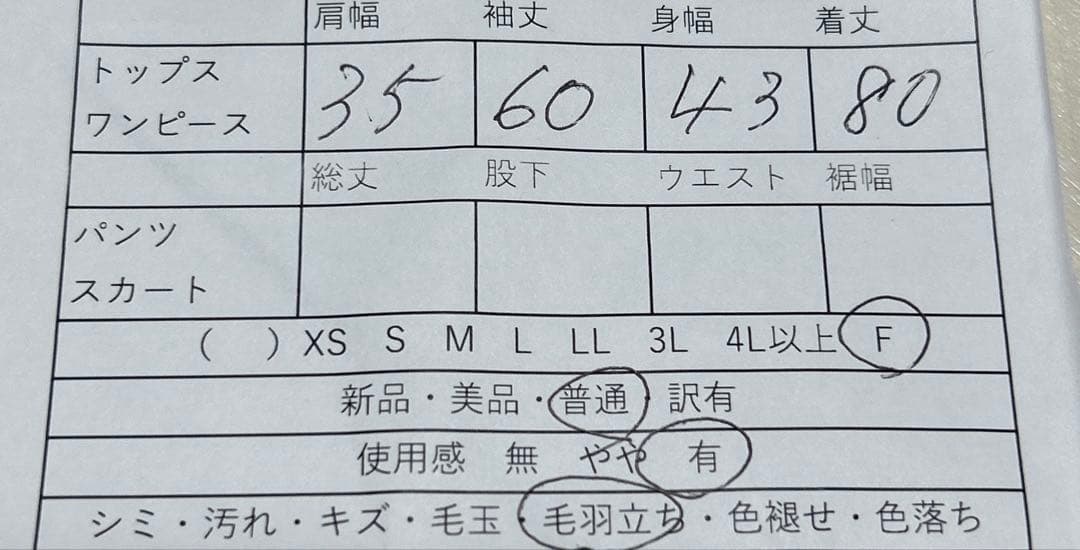 肩幅 袖丈 身幅 着丈
トップス
ワンピース 35 60 43 80
総丈 股下 ウエスト 裾幅
パンツ
スカート
( ) XS S M L LL 3L 4L以上 F
新品・美品・普通・訳有
使用感 無 やや 有
シミ・汚れ・キズ・毛玉・毛羽立ち・色褪せ・色落ち